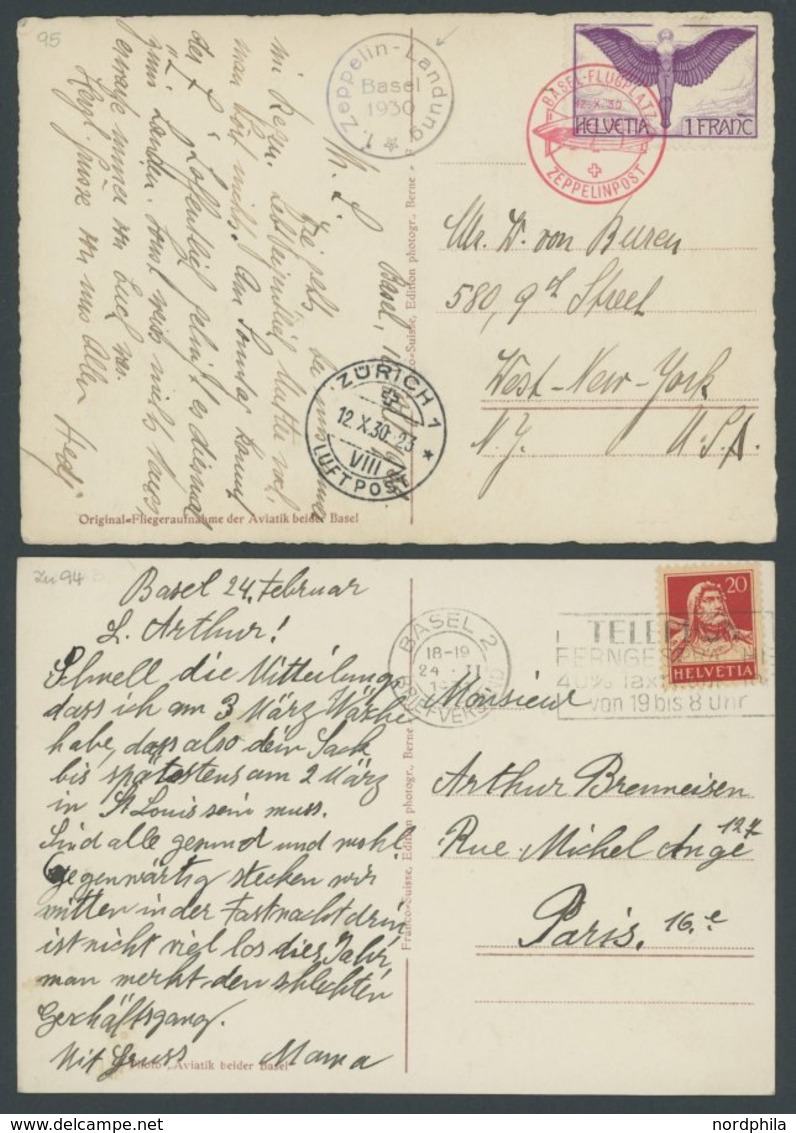 95
1. Zeppelin-Landung
Basel
1930
BASEL-FLUGPLATZ
12.X.30
ZEPPELINPOST
HELVETIA 1 FRANC
M. L. Basel,
Wie jetzt bei
man hört nichts. Am Sonntag kommt
der Z. Hoffentlich gelingt es diesmal
zum Landen. Sonst weiss nichts
immer von Euch
von uns allen
Hedy
ZÜRICH 1
12.X.30-23
VIII
LUFTPOST
Mr. W. von Bueren
580, 9th Street
West-New-York
N.Y. U.S.A.
Franco-Suisse, Edition photogr., Berne
Original=Fliegeraufnahme der Aviatik beider Basel
Zu 94
Basel 24. Februar
L. Arthur!
Schnell die Mitteilung
dass ich am 3 März Wäsche
habe, dass also dein Sack
bis spätestens am 2 März
in St Louis sein muss.
Sind alle gesund und wohl
Gegenwärtig stecken wir
mitten in der Fastnacht drin
ist nicht viel los dies Jahr
man merkt den schlechten
Geschäftsgang.
Mit Gruss Mama
Photo „Aviatik beider Basel“
Franco-Suisse, Edition photogr., Berne
BASEL 2
18-19
24. II
BRIEFVERSAND
TELEPHON
FERNGESPRÄCHE
40% Tax
von 19 bis 8 Uhr
20
HELVETIA
Monsieur
Arthur Brenneisen
127
Rue Michel Ange
Paris. 16.e
nordphila